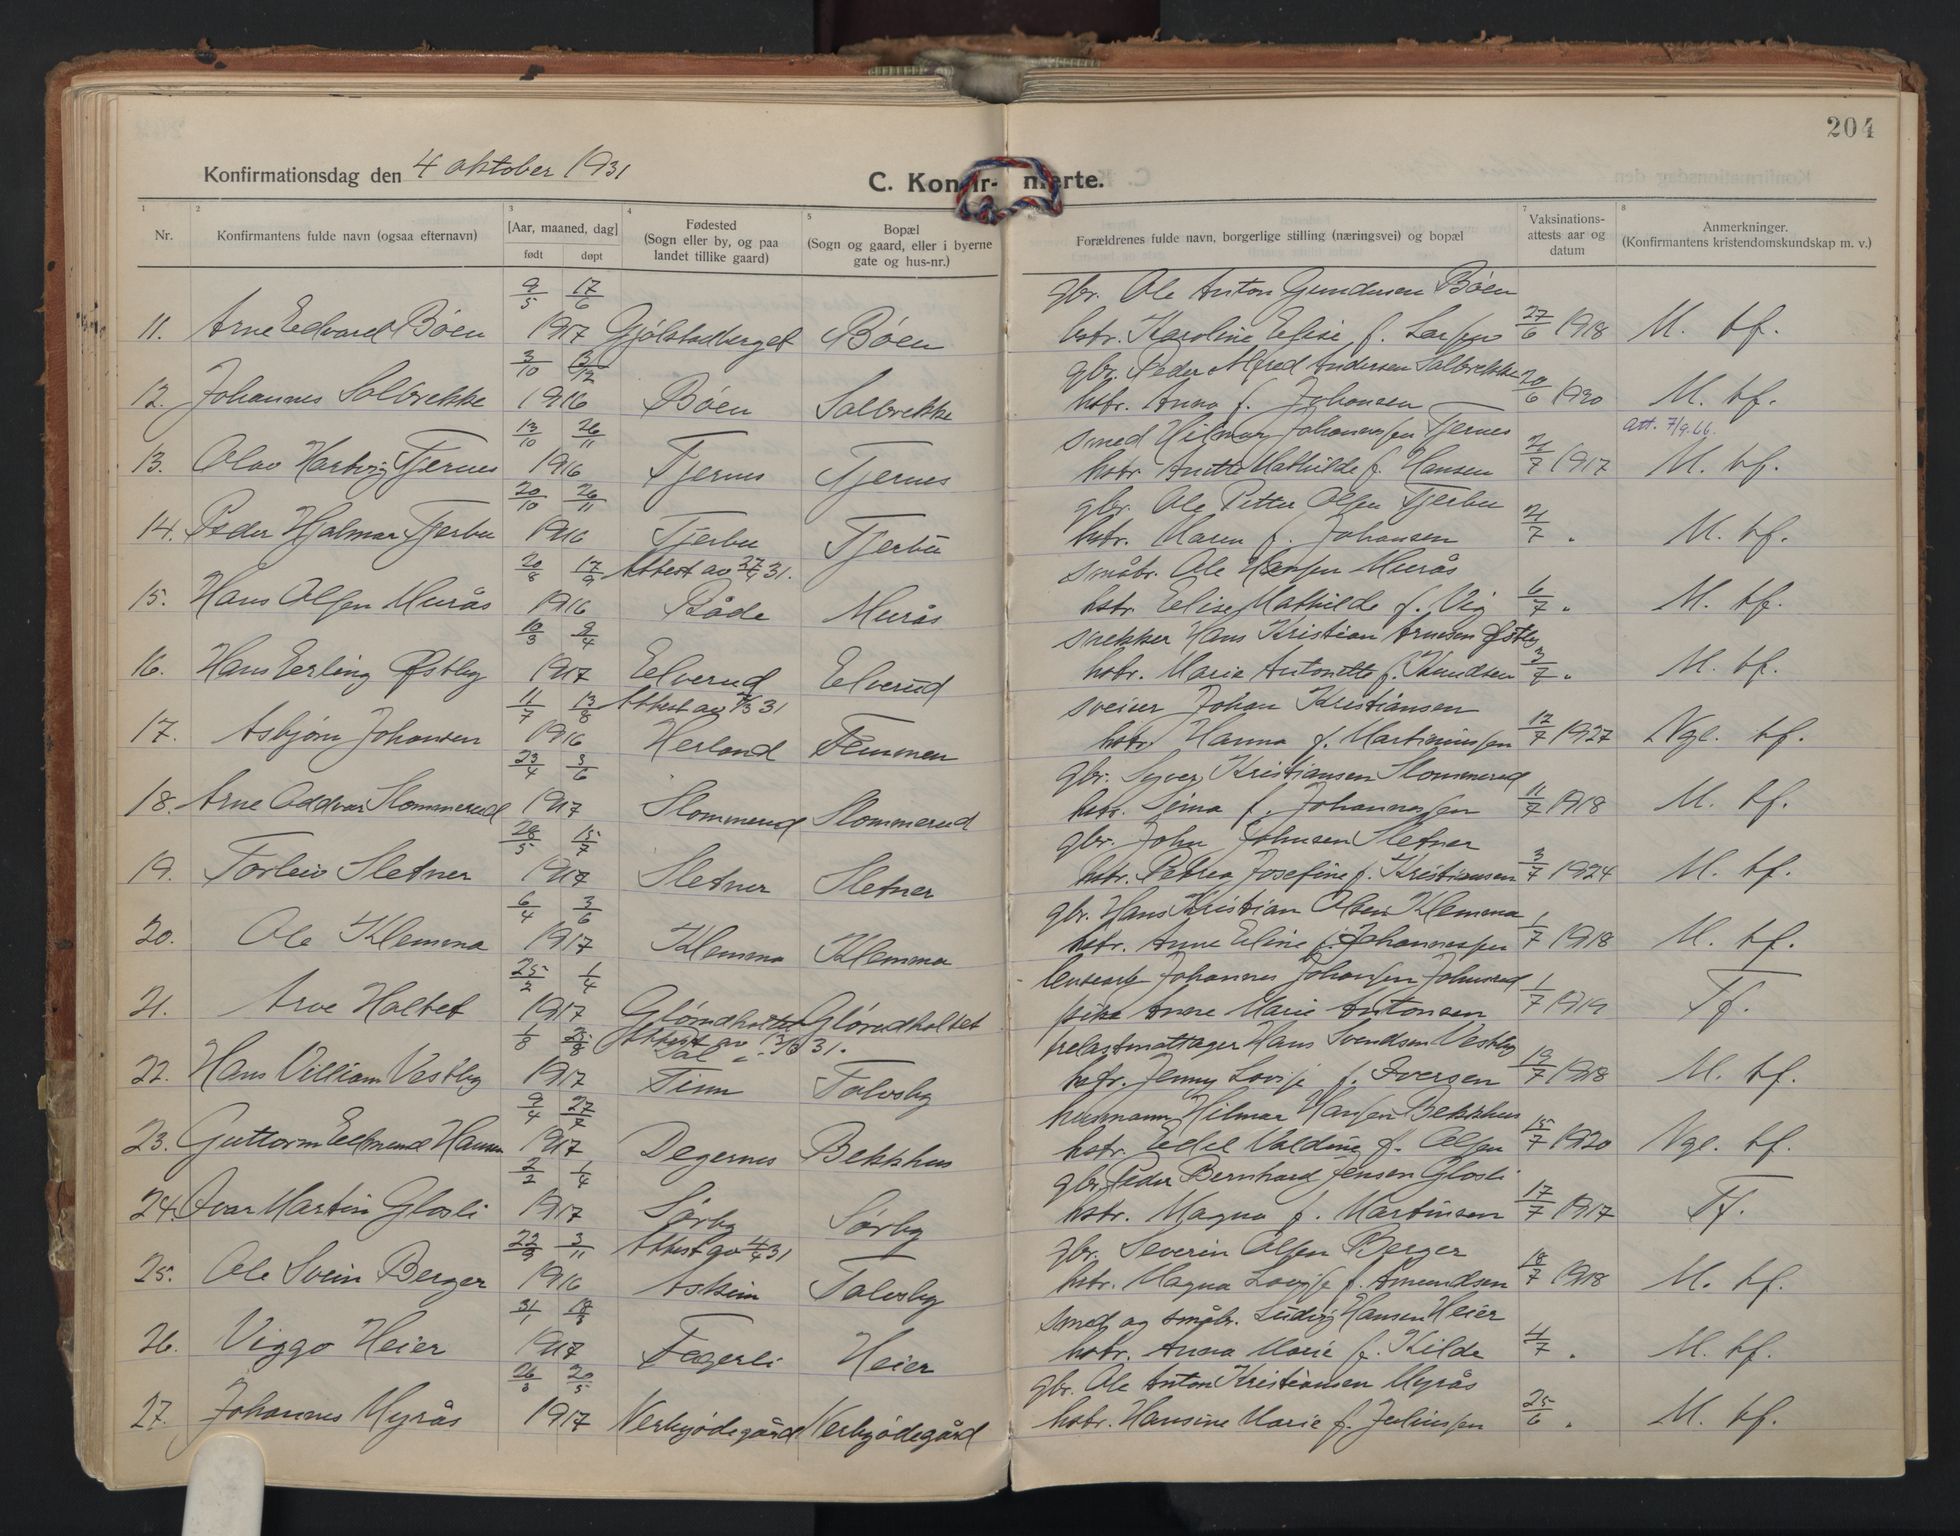 204
Konfirmationsdag den 4 oktober 1931
C. Konfir- merte.
1 2 3 4 5 7 8
Nr.
Konfirmantens fulde navn (ogsaa efternavn)
[Aar, maaned, dag]
født døpt
Fødested
(Sogn eller by, og paa
landet tillike gaard)
Bopæl
(Sogn og gaard, eller i byerne
gate og hus-nr.)
Forældrenes fulde navn, borgerlige stilling (næringsvei) og bopæl
Vaksinations-
attests aar og
datum
Anmerkninger.
(Konfirmantens kristendomskundskap m. v.)
9/5 17/6 gbr. Ole Anton Gundersen Bøen
11. Arne Edvard Bøen 1917 Gjølstadberget Bøen hstr. Karoline Elise f. Larsen 27/6 1918 M. tf.
3/10 3/12 gbr. Peder Alfred Andersen Solbrekke
12. Johannes Solbrekke 1916 Bøen Solbrekke hstr. Anna f. Johansen 20/6 1930 M. tf.
13/10 26/11 smed Hilmar Johannesen Tjernes att. 7/9.66.
13. Olav Hartvig Tjernes 1916 Tjernes Tjernes hstr. Mathilde f. Hansen 21/7 1917 M. tf.
20/10 26/11 gbr. Ole Petter Olsen Tjerbu
14. Peder Hjalmar Tjerbu 1916 Tjerbu Tjerbu hstr. Maren f. Johansen 21/7 " M. tf.
20/8 17/9 Attest av 31. småbr. Ole Hansen Murås
15. Hans Olsen Murås 1916 Råde Murås hstr. Elise Mathilde f. Vig 6/7 " M. tf.
10/3 9/4 snekker Hans Kristian Arnesen Østby
16. Hans Erling Østby 1917 Elverud Elverud hstr. Marie Antonette f. Knudsen 3/7 " M. tf.
11/7 13/8 Attest av 31 sveiser Johan Kristiansen
17. Asbjørn Johansen 1916 Herland Femmen hstr. Hanna f. Martiniussen 12/7 1927 Ngl. tf.
23/4 3/6 gbr. Syver Kristiansen Slommerud
18. Arne Oddvar Slommerud 1917 Slommerud Slommerud hstr. f. Johannessen 11/7 1918 M. tf.
28/5 15/7 gbr. John Johnsen Sletner
19. Torleiv Sletner 1917 Sletner Sletner hstr. Petrea Josefine f. Kristiansen 3/7 1924 M. tf.
6/4 3/6 gbr. Hans Kristian Olsen Klemma
20. Ole Klemma 1917 Klemma Klemma hstr. Anne Eline f. Johannessen 1/7 1918 M. tf.
25/2 1/4 Johannes Johansen
21. Arve Holtet 1917 Glørudholtet Glørudholtet pike Anne Marie Antonsen 1/7 1919 Tf.
1/8 25/8 Attest av 13/3 31. Hans Svendsen Vestby
22. Hans Villiam Vestby 1917 Tinn Talvsby hstr. Jenny Lovise f. Iversen 19/7 1918 M. tf.
9/4 27/7 husmann Hilmar Hansen Bekkhus
23. Guttorm Edmund Hansen 1917 Degernes Bekkhus hstr. Edel Valdine f. Olsen 15/7 1920 Ngl. tf.
2/2 1/4 gbr. Peder Bernhard Jensen Glosli
24. Ivar Martin Glosli 1917 Sørby Sørby hstr. Magna f. Martinsen 17/7 1917 Tf.
22/9 3/11 Attest av 31 gbr. Severin Olsen Berger
25. Ole Svein Berger 1916 Askim Talvsby hstr. Magna Lovise f. Amundsen 18/7 1918 M. tf.
31/1 18/3 smed og småbr. Ludvig Hansen Heier
26. Viggo Heier 1917 Fagerli Heier hstr. Anna Marie f. Kilde 4/7 " M. tf.
26/3 20/5 gbr. Ole Anton Kristiansen Myrås
27. Johannes Myrås 1917 Verbyødegård Verbyødegård hstr. Hansine Marie f. Juliussen 25/6 " M. tf.